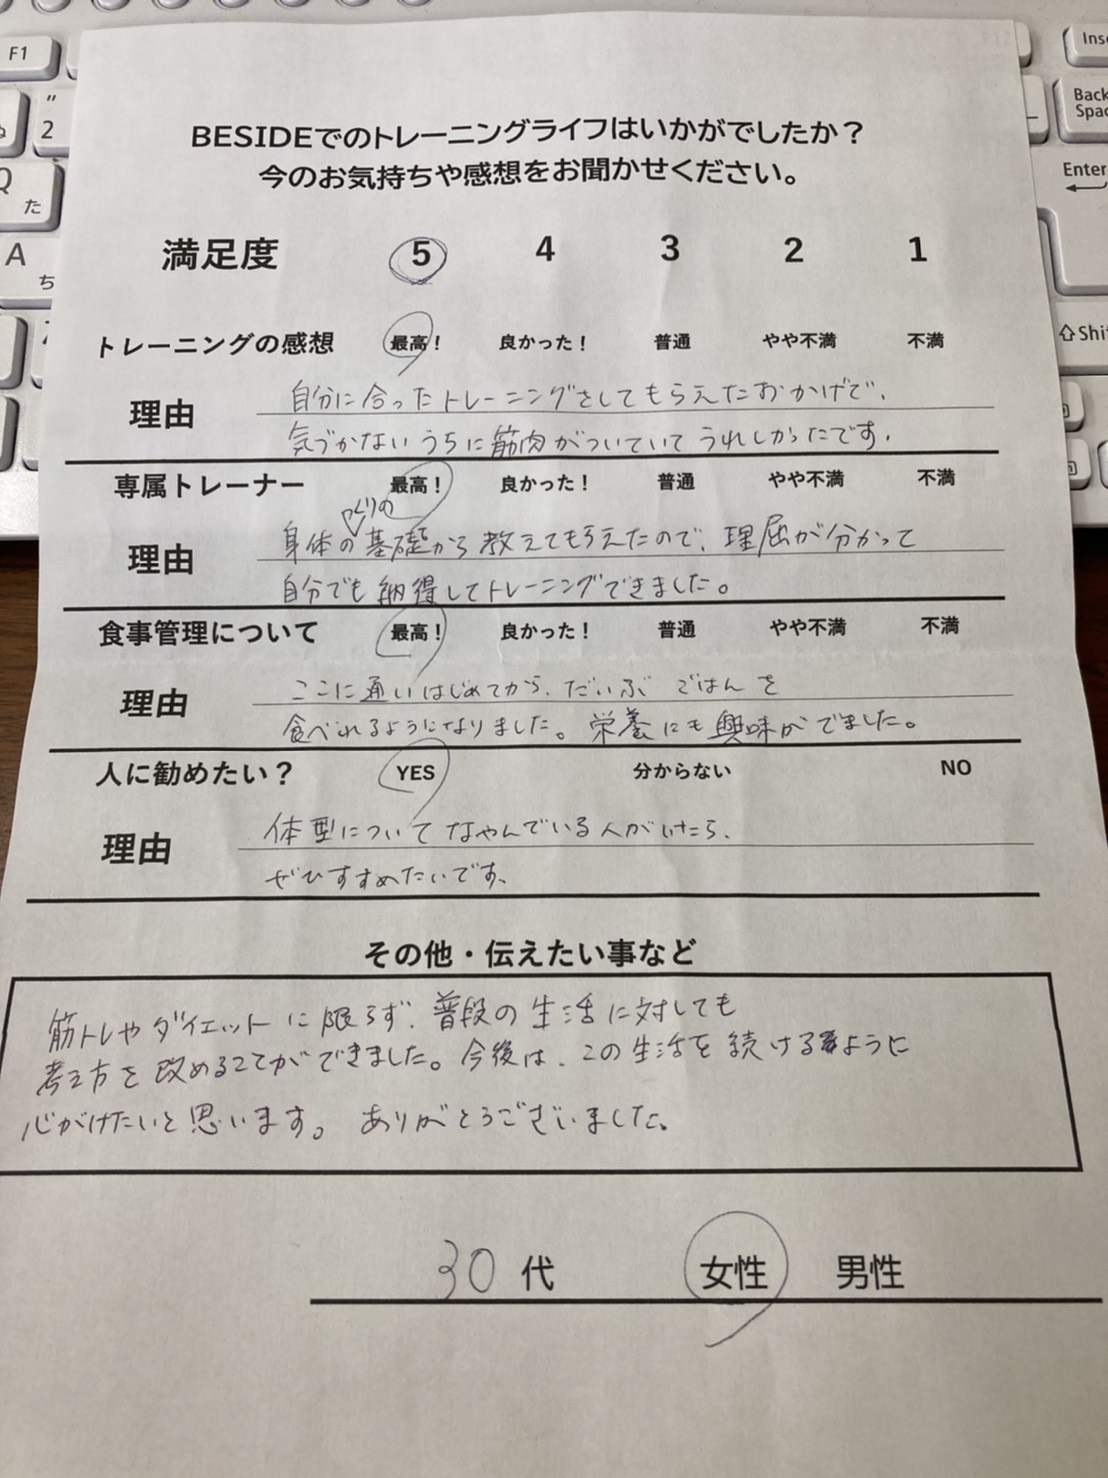 BESIDEでのトレーニングライフはいかがでしたか？
今のお気持ちや感想をお聞かせください。
満足度 5 4 3 2 1
トレーニングの感想 最高！ 良かった！ 普通 やや不満 不満
理由 自分に合ったトレーニングをしてもらえたおかげで、
気づかないうちに筋肉がついていてうれしかったです。
専属トレーナー 最高！ 良かった！ 普通 やや不満 不満
づくりの
理由 身体の基礎から教えてもらえたので、理屈が分かって
自分でも納得してトレーニングできました。
食事管理について 最高！ 良かった！ 普通 やや不満 不満
理由 ここに通いはじめてから、だいぶごはんを
食べれるようになりました。栄養にも興味がでました。
人に勧めたい？ YES 分からない NO
理由 体型についてなやんでいる人がいたら、
ぜひすすめたいです。
その他・伝えたい事など
筋トレやダイエットに限らず、普段の生活に対しても
考え方を改めることができました。今後は、この生活を続けるように
心がけたいと思います。ありがとうございました。
30代 女性 男性
F1
"
2
Q
た
A
ち
Ins
Back
Spac
Enter
Shi